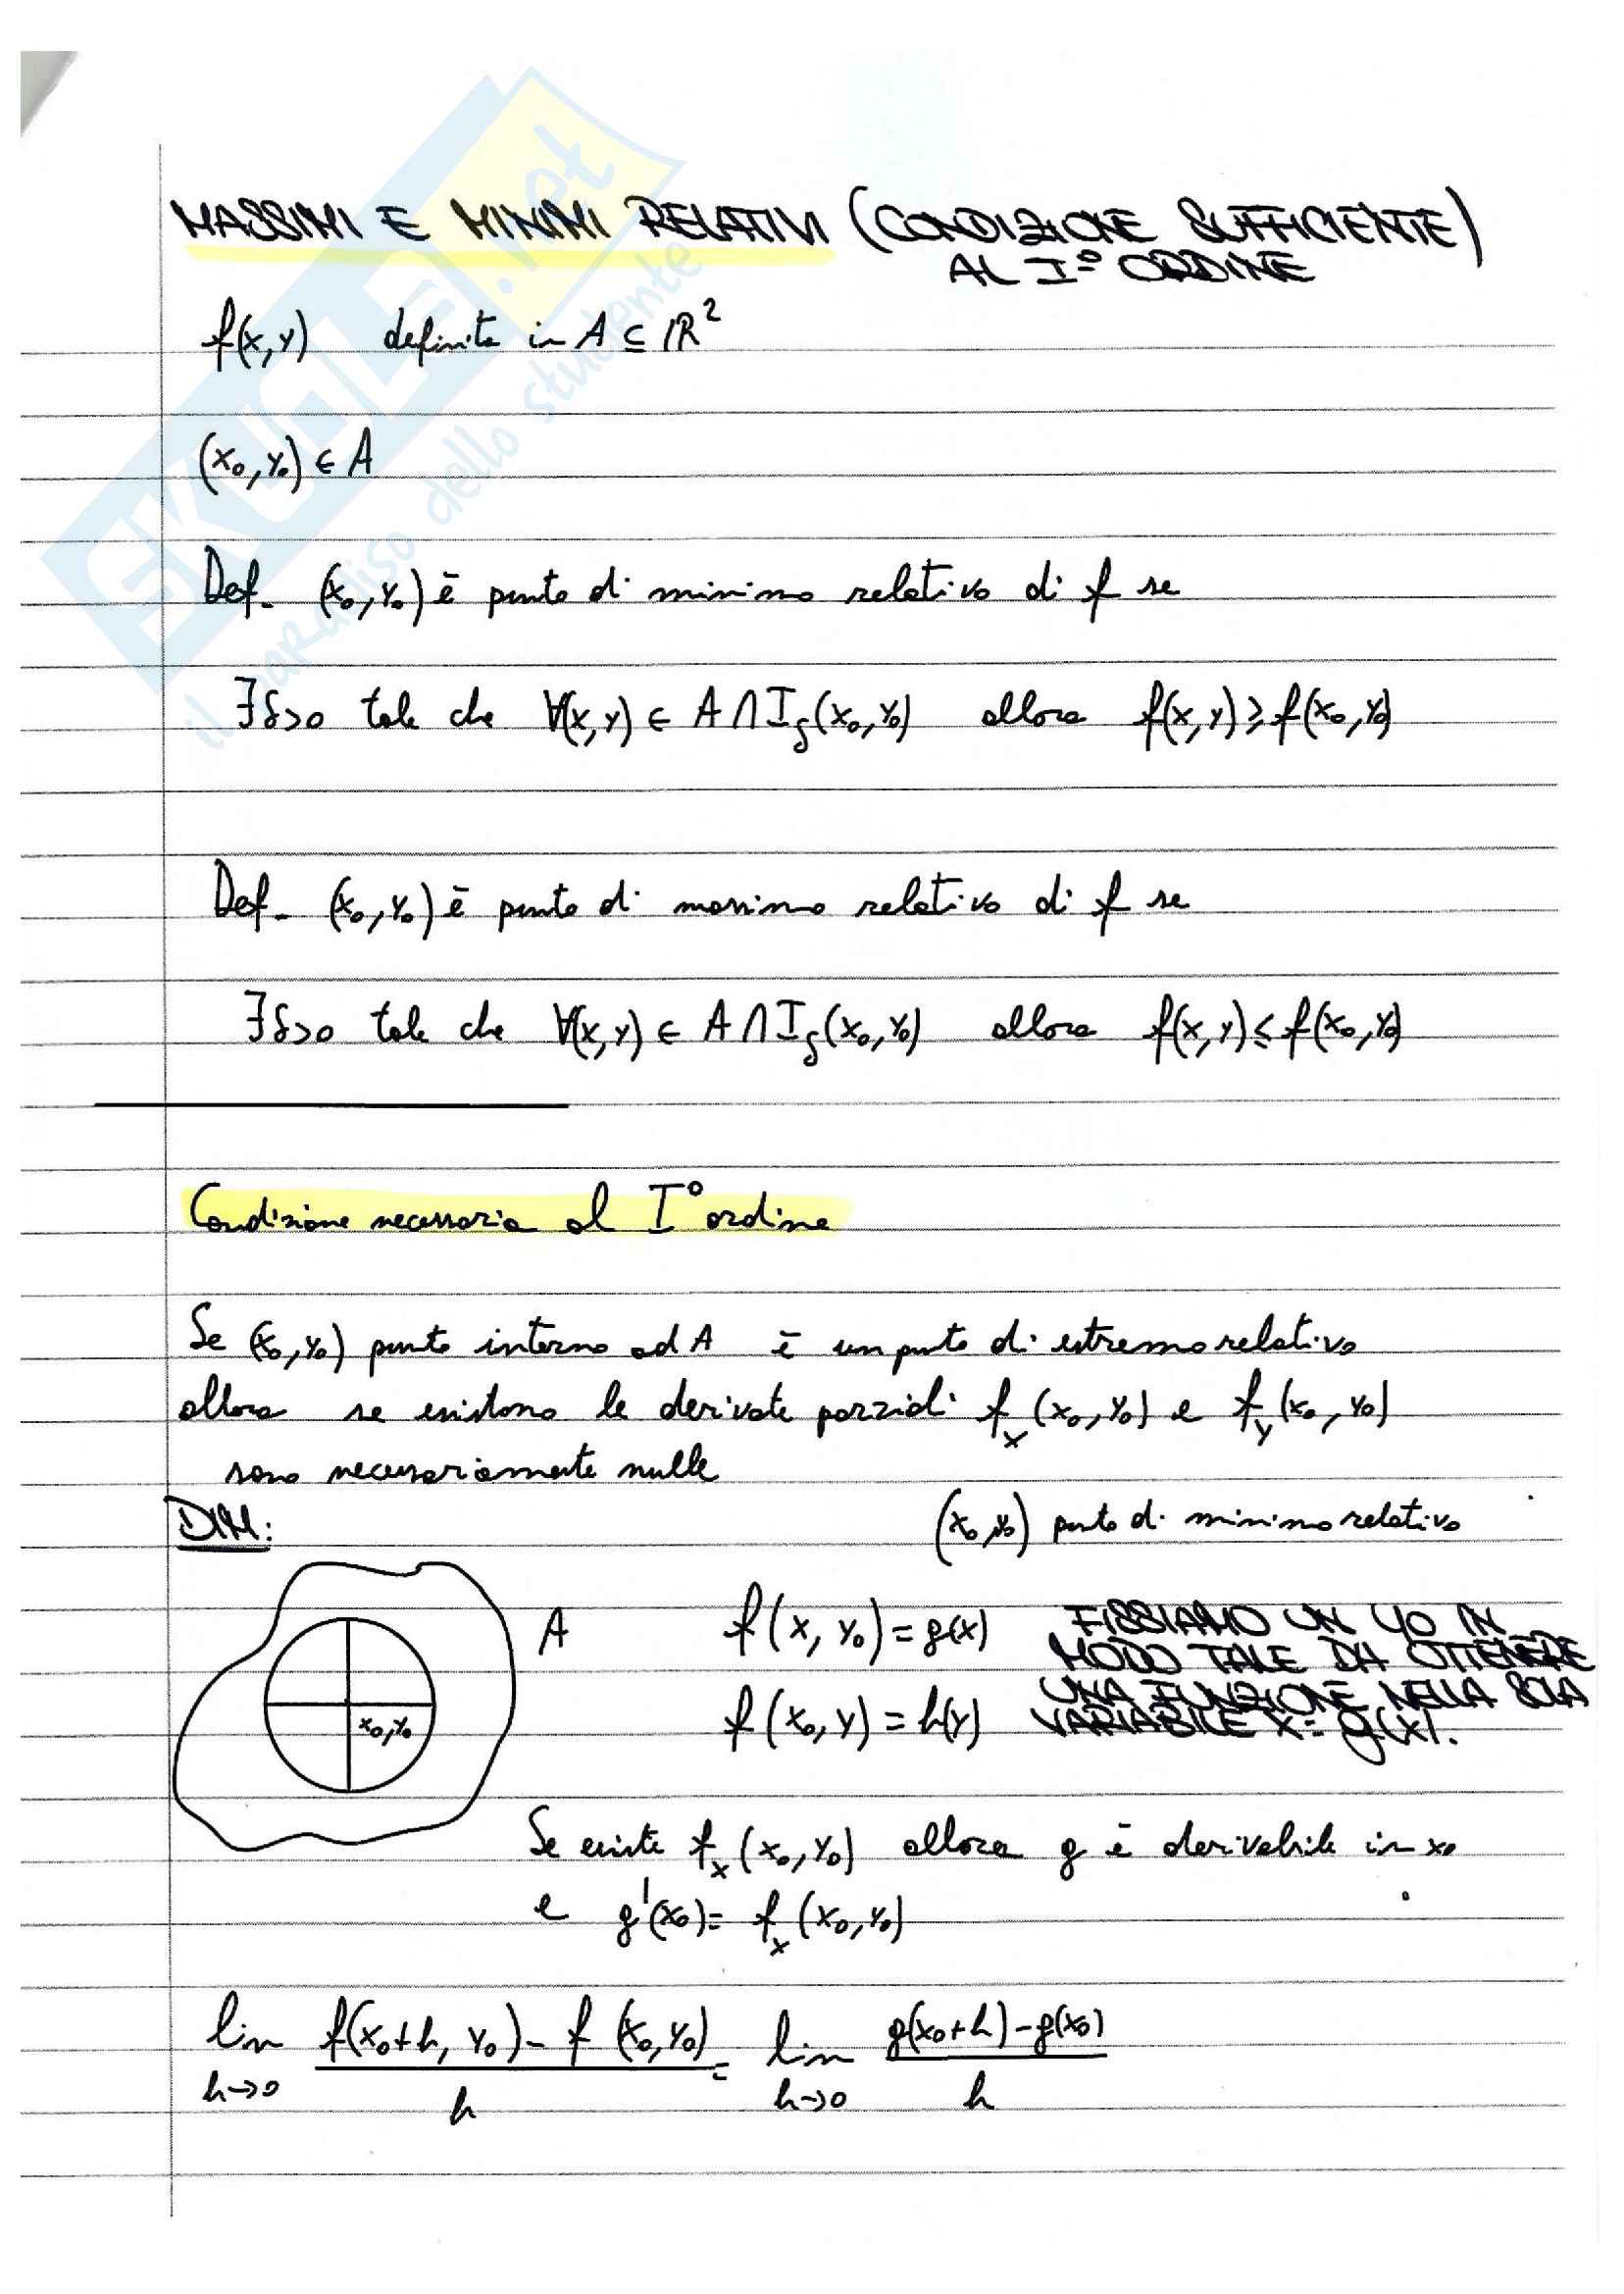 MASSIMI E MINIMI RELATIVI (CONDIZIONE SUFFICIENTE)
AL I° ORDINE
f(x,y) definita in A ⊆ ℝ²
(x₀,y₀) ∈ A
Def. (x₀,y₀) è punto di minimo relativo di f se
∃δ>0 tale che ∀(x,y) ∈ A ∩ I_δ(x₀,y₀) allora f(x,y) ≥ f(x₀,y₀)
Def. (x₀,y₀) è punto di massimo relativo di f se
∃δ>0 tale che ∀(x,y) ∈ A ∩ I_δ(x₀,y₀) allora f(x,y) ≤ f(x₀,y₀)
Condizione necessaria al I° ordine
Se (x₀,y₀) punto interno ad A è un punto di estremo relativo
allora se esistono le derivate parziali f_x (x₀,y₀) e f_y (x₀,y₀)
sono necessariamente nulle
DIM: (x₀,y₀) punto di minimo relativo
A f(x,y₀) = g(x) FISSIAMO UN y0 IN
MODO TALE DA OTTENERE
UNA FUNZIONE NELLA SOLA
x₀,y₀ f(x₀,y) = h(y) VARIABILE x = g(x).
Se esiste f_x (x₀,y₀) allora g è derivabile in x₀
e g'(x₀) = f_x (x₀,y₀)
lim f(x₀+h, y₀) - f (x₀,y₀) = lim g(x₀+h) - g(x₀)
h→0 h h→0 h
SKUOLA.net
il paradiso dello studente